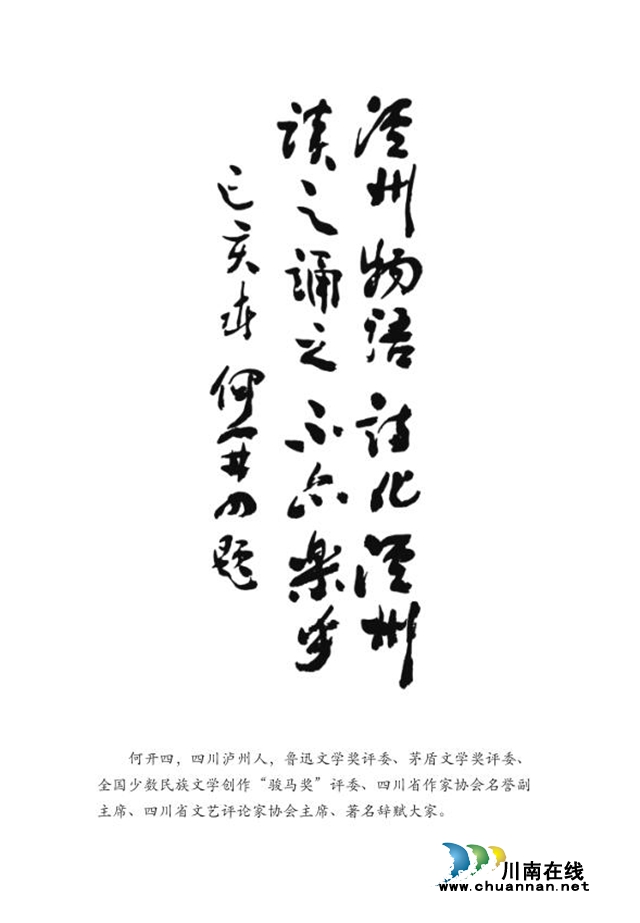 泸州物语 诗化泸州
读之诵之 不亦樂乎
己亥 何开四题
何开四，四川泸州人，鲁迅文学奖评委、茅盾文学奖评委、
全国少数民族文学创作“骏马奖”评委、四川省作家协会名誉副
主席、四川省文艺评论家协会主席、著名辞赋大家。
川南在线
www.chuannan.net